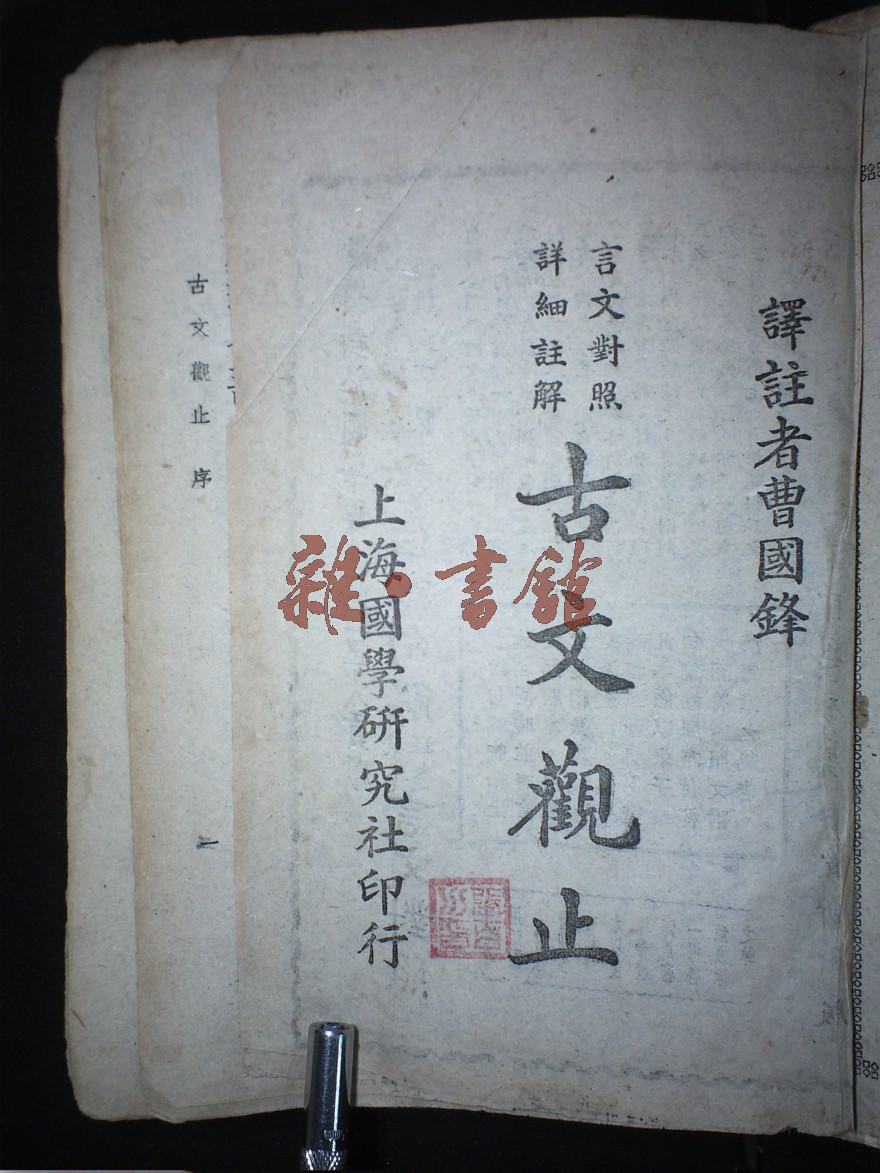 譯註者曹國鋒
言文對照
詳細註解
古文觀止
上海國學研究社印行
古文觀止 序
二
雜·書館